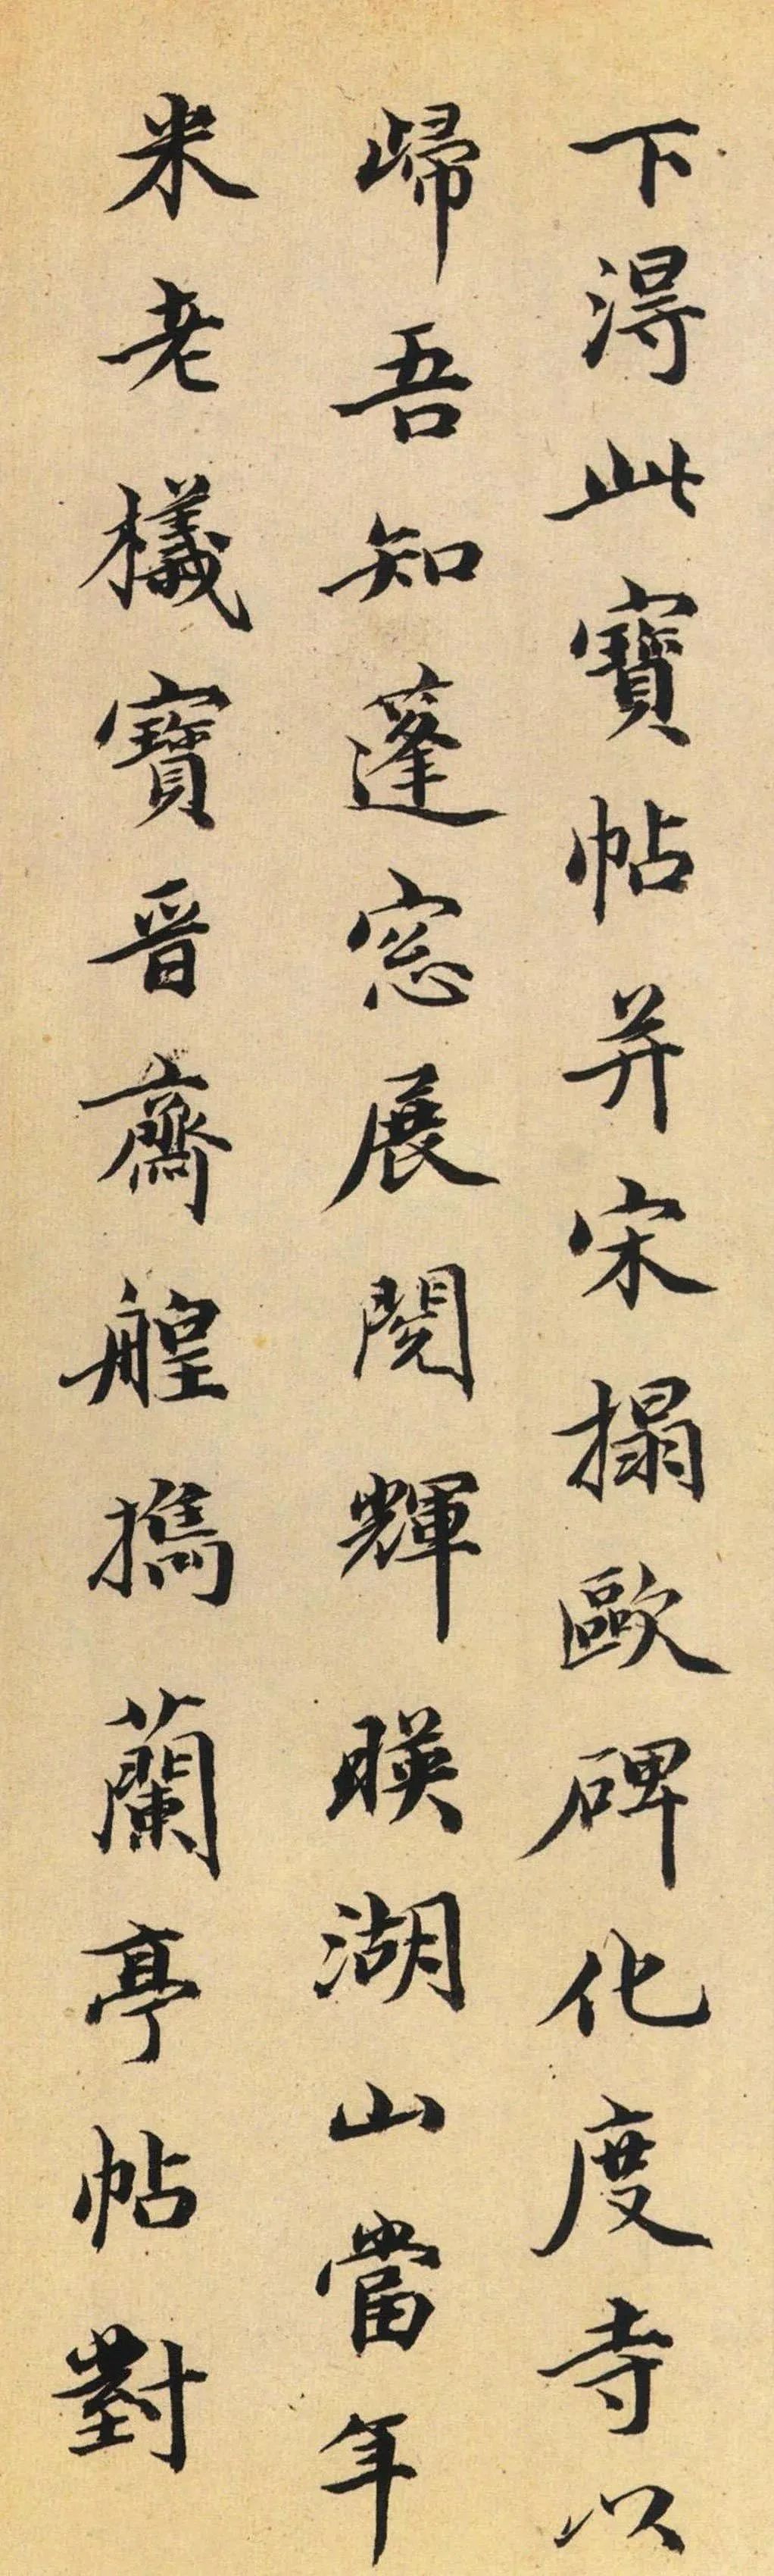 下得此寶帖并宋搨歐碑化度寺以
歸吾知蓬窓展閱輝暎湖山當年
米老檥寶晉齋艎携蘭亭帖對